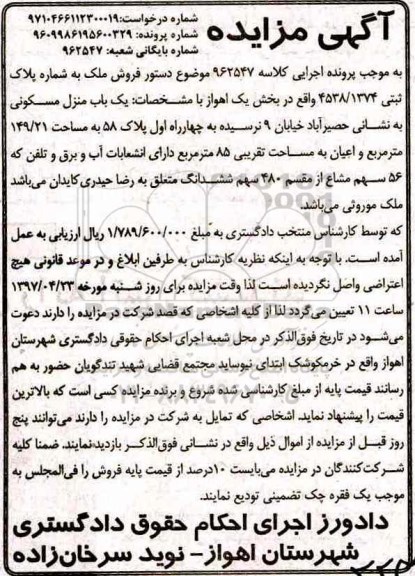 آگهی مزایده
شماره درخواست: ۹۷۱۰۴۶۶۱۱۲۳۰۰۰۱۹
شماره پرونده: ۹۶۰۹۹۸۶۱۹۵۶۰۰۳۲۹
شماره بایگانی شعبه: ۹۶۲۵۴۷
به موجب پرونده اجرایی کلاسه ۹۶۲۵۴۷ موضوع دستور فروش ملک به شماره پلاک
ثبتی ۴۵۳۸/۱۳۷۴ واقع در بخش یک اهواز با مشخصات: یک باب منزل مسکونی
به نشانی حصیرآباد خیابان ۹ نرسیده به چهارراه اول پلاک ۵۸ به مساحت ۱۴۹/۲۱
مترمربع و اعیان به مساحت تقریبی ۸۵ مترمربع دارای انشعابات آب و برق و تلفن که
۵۶ سهم مشاع از مقسم ۴۸۰ سهم ششدانگ متعلق به رضا حیدری کایدان می‌باشد
ملک موروثی می‌باشد.
که توسط کارشناس منتخب دادگستری به مبلغ ۱/۷۸۹/۶۰۰/۰۰۰ ریال ارزیابی به عمل
آمده است. با توجه به اینکه نظریه کارشناس به طرفین ابلاغ و در موعد قانونی هیچ
اعتراضی واصل نگردیده است لذا وقت مزایده برای روز شنبه مورخه ۱۳۹۷/۰۴/۲۳
ساعت ۱۱ تعیین می‌گردد لذا از کلیه اشخاصی که قصد شرکت در مزایده را دارند دعوت
می‌شود در تاریخ فوق‌الذکر در محل شعبه اجرای احکام حقوقی دادگستری شهرستان
اهواز واقع در خرمکوشک ابتدای نیوساید مجتمع قضایی شهید تندگویان حضور به هم
رسانند قیمت پایه از مبلغ کارشناسی شده شروع و برنده مزایده کسی است که بالاترین
قیمت را پیشنهاد نماید. اشخاصی که تمایل به شرکت در مزایده را دارند می‌توانند پنج
روز قبل از مزایده از اموال ذیل واقع در نشانی فوق‌الذکر بازدید نمایند. ضمنا کلیه
شرکت‌کنندگان در مزایده می‌بایست ۱۰درصد از قیمت پایه فروش را فی‌المجلس به
موجب یک فقره چک تضمینی تودیع نمایند.
دادورز اجرای احکام حقوق دادگستری
شهرستان اهواز– نوید سرخان‌زاده